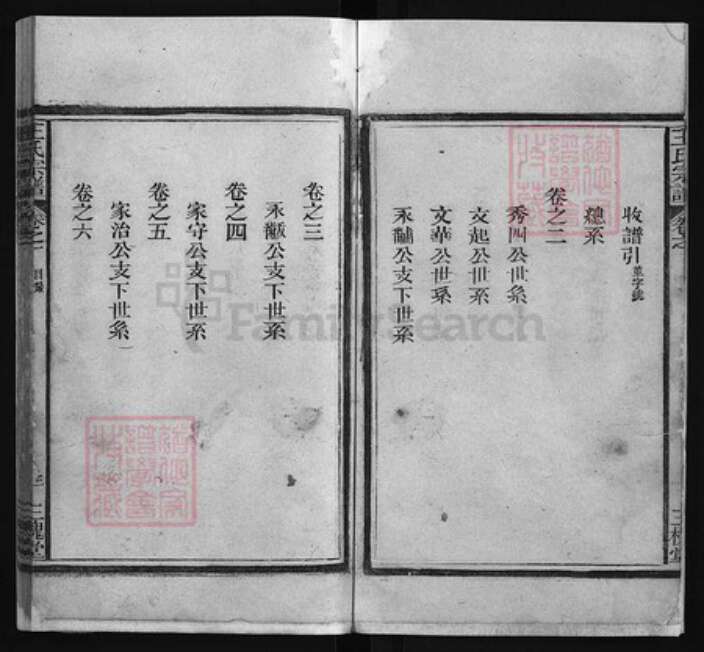 收譜引
總系
卷之二
秀四公世系
文起公世系
文華公世系
永黼公支下世系
卷之三
永黻公支下世系
卷之四
家守公支下世系
卷之五
家治公支下世系
卷之六
王氏宗譜
卷之
目錄
三槐堂
王氏宗譜
卷之
三槐堂
FamilySearch